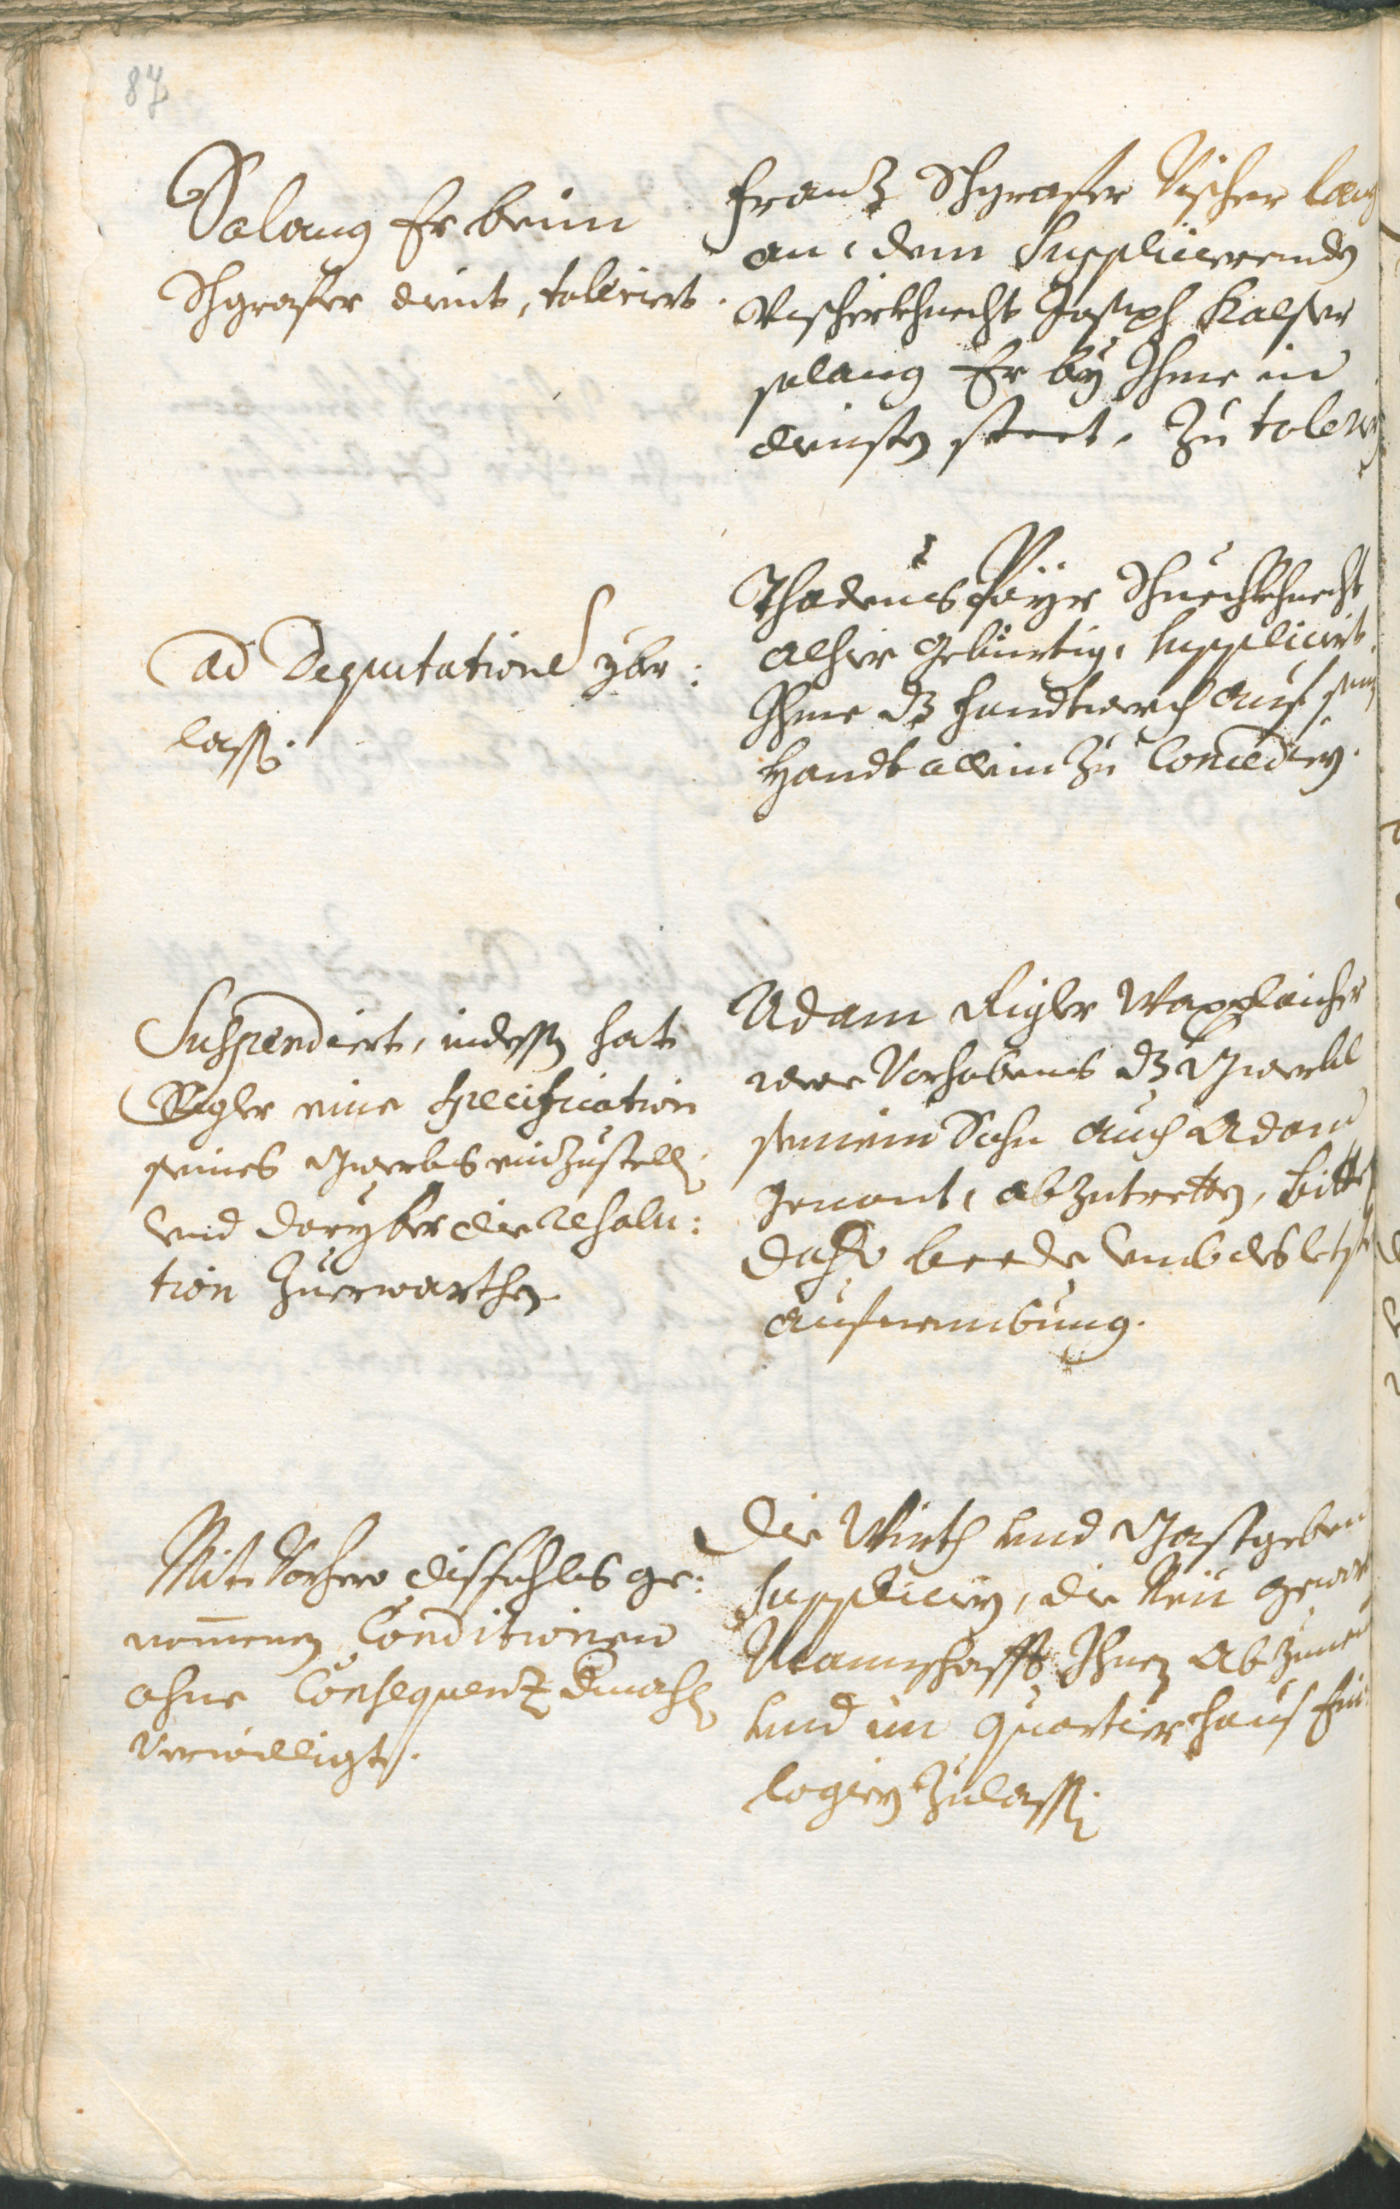 87
Solang Er beim
Schgraffer dient, tolleriert.
Frantz Schgraffer Vischer lang
an, dem Supplicierenden
Vischerkhnecht Joseph Kalser
solang Er bey Ihme in
diensten steet, zu toler
ad Deputationem yber:
lassen.
Thadeus Payr Schuechkhnecht
alhier gebürtig, supplicirt
Ihme dz Handtwerch auf sein
Handt allein zu concedirn.
Suspendiert, indessen hat
Rigler eine Specification
seines Gwerbs einzustellen
und daryber die Resolu:
tion zuerwarthen.
Adam Rigler Waxplaicher
were Vorhabens dz Gwerbl
seinem Sohn auch Adam
genant, abzutretten, bitten
daher beede umb des letsten
aufnembung.
Mit Vorhero disfahls ge:
nommenen Conditionen
ohne Consequenz Einmahl
verwilligt.
Die Würth und Gastgeben
Supplicirn, die Neu gewor
Mannschafft Ihnen abzunemen
und im Quartierhaus Ein
logirn zulassen.